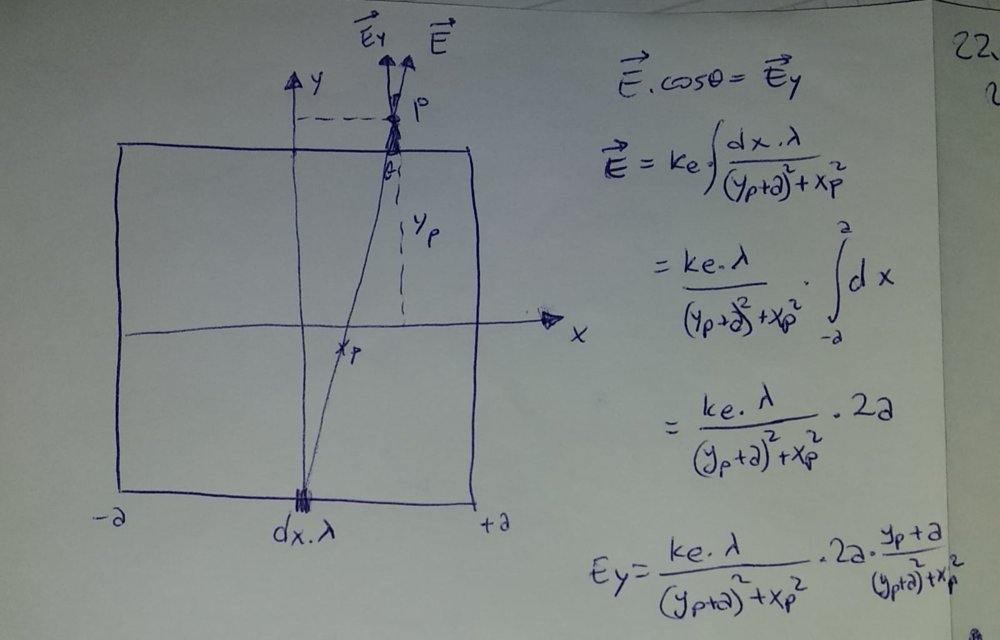 E⃗y E⃗
y
P
θ
yp
x
xp
-a
+a
dx.λ
E⃗ . cosθ = E⃗y
E⃗ = ke ∫ dx.λ / (yp+a)² + xp²
= ke.λ / (yp+a)² + xp² . ∫ₐ₋ₐ dx
= ke.λ / (yp+a)² + xp² . 2a
Ey = ke.λ / (yp+a)² + xp² . 2a . yp+a / (yp+a)² + xp²
22.